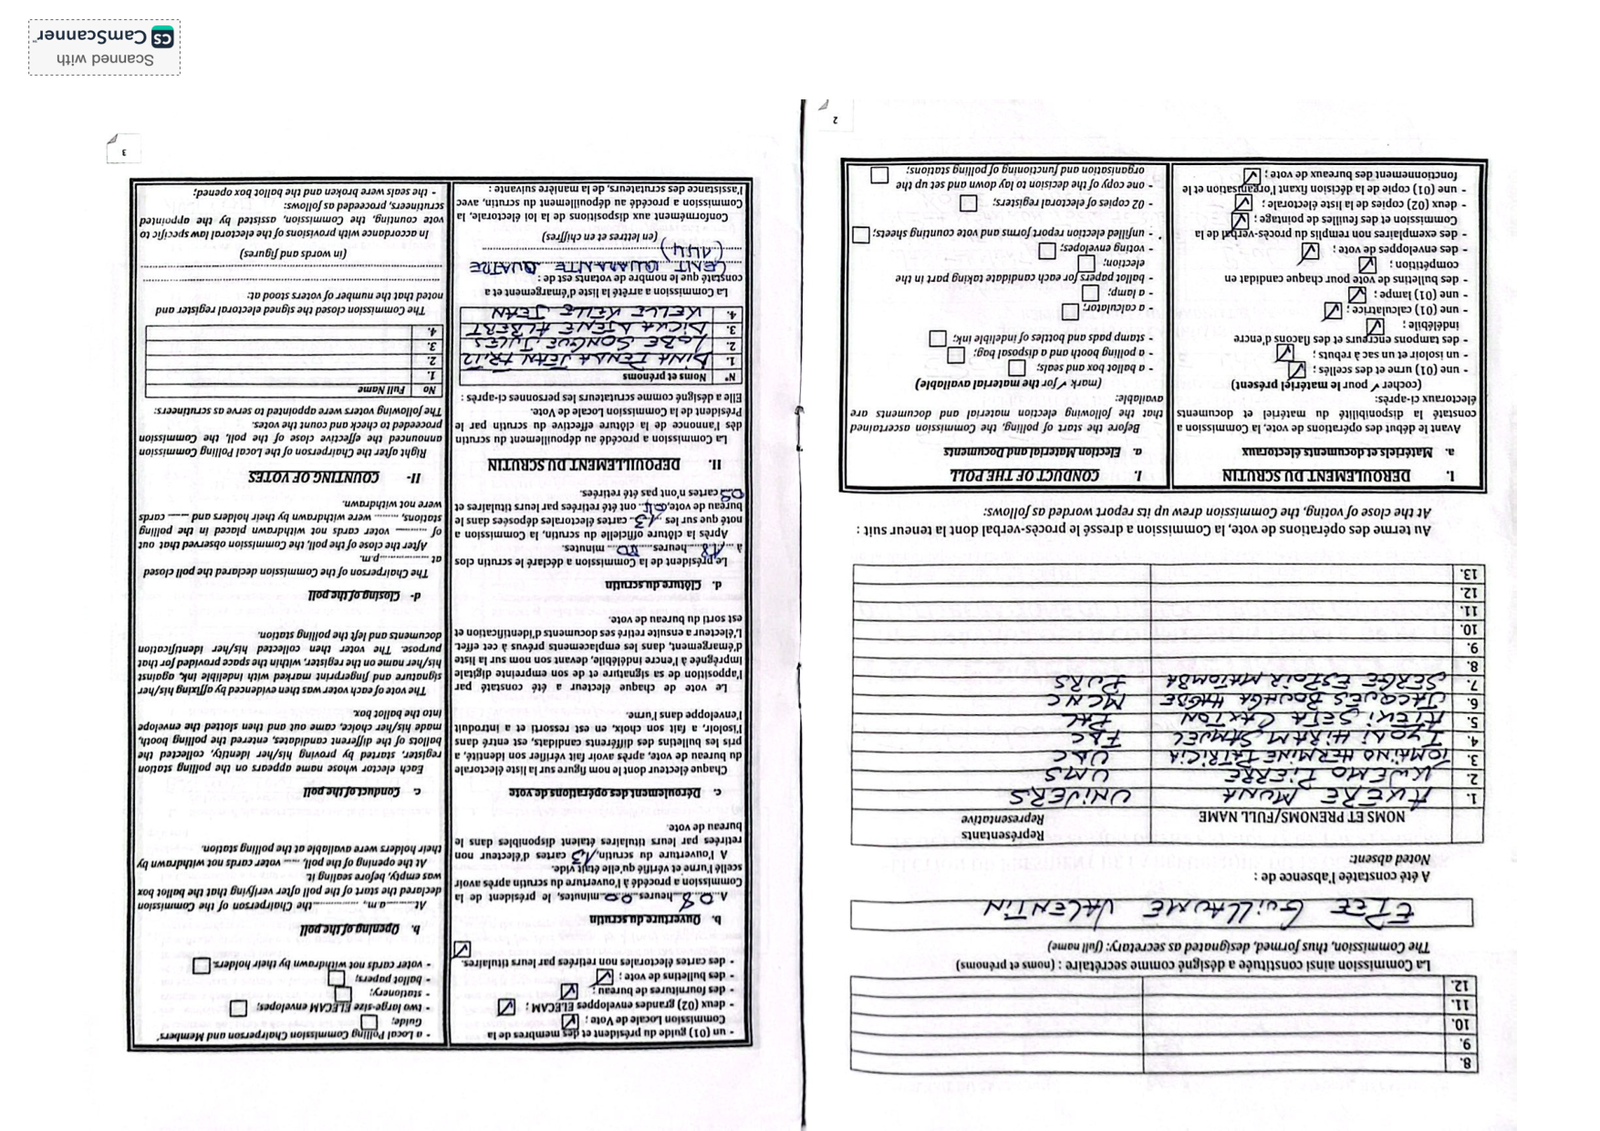 8.
9.
10.
11.
12.
La Commission ainsi constituée a désigné comme secrétaire : (noms et prénoms)
The Commission, thus formed, designated as secretary: (full name)
EPEE GUILLAUME VALENTIN
A été constatée l'absence de :
Noted absent:
NOMS ET PRENOMS/FULL NAME
Représentants
Representative
1. AKERE MUNA UNIVERS
2. KWEMO PIERRE UMS
3. TOMAÏNO HERMINE PATRICIA UDC
4. IYODI HIRAM SAMUEL FDC
5. ATEKI SETA CAXTON PAL
6. JACQUES BOUGHA HAGBE MCNC
7. SERGE ESPOIR MATOMBA PURS
8.
9.
10.
11.
12.
13.
Au terme des opérations de vote, la Commission a dressé le procès-verbal dont la teneur suit :
At the close of voting, the Commission drew up its report worded as follows:
I. DEROULEMENT DU SCRUTIN
a. Matériels et documents électoraux
Avant le début des opérations de vote, la Commission a
constaté la disponibilité du matériel et documents
électoraux ci-après:
(cocher ✓ pour le matériel présent)
- une (01) urne et des scellés ; ✓
- un isoloir et un sac à rebuts ; ✓
- des tampons encreurs et des flacons d'encre
indélébile ; ✓
- une (01) calculatrice ; ✓
- une (01) lampe ; ✓
- des bulletins de vote pour chaque candidat en
compétition ; ✓
- des enveloppes de vote ; ✓
- des exemplaires non remplis du procès-verbal de la
Commission et des feuilles de pointage ; ✓
- deux (02) copies de la liste électorale ; ✓
- une (01) copie de la décision fixant l'organisation et le
fonctionnement des bureaux de vote ; ✓
I. CONDUCT OF THE POLL
a. Election Material and Documents
Before the start of polling, the Commission ascertained
that the following election material and documents are
available:
(mark ✓ for the material available)
- a ballot box and seals;
- a polling booth and a disposal bag;
- stamp pads and bottles of indelible ink;
- a calculator;
- a lamp;
- ballot papers for each candidate taking part in the
election;
- voting envelopes;
- unfilled election report forms and vote counting sheets;
- 02 copies of electoral registers;
- one copy of the decision to lay down and set up the
organisation and functioning of polling stations;
2
- un (01) guide du président et des membres de la
Commission Locale de Vote ; ✓
- deux (02) grandes enveloppes ELECAM ; ✓
- des fournitures de bureau ; ✓
- des bulletins de vote ; ✓
- des cartes électorales non retirées par leurs titulaires. ✓
b. Ouverture du scrutin
A 08 heures 00 minutes, le président de la
Commission a procédé à l'ouverture du scrutin après avoir
scellé l'urne et vérifié qu'elle était vide.
A l'ouverture du scrutin, 13 cartes d'électeur non
retirées par leurs titulaires étaient disponibles dans le
bureau de vote.
c. Déroulement des opérations de vote
Chaque électeur dont le nom figure sur la liste électorale
du bureau de vote, après avoir fait vérifier son identité, a
pris les bulletins des différents candidats, est entré dans
l'isoloir, a fait son choix, en est ressorti et a introduit
l'enveloppe dans l'urne.
Le vote de chaque électeur a été constaté par
l'apposition de sa signature et de son empreinte digitale
imprégnée à l'encre indélébile, devant son nom sur la liste
d'émargement, dans les emplacements prévus à cet effet.
L'électeur a ensuite retiré ses documents d'identification et
est sorti du bureau de vote.
d. Clôture du scrutin
Le président de la Commission a déclaré le scrutin clos
à 18 heures 00 minutes.
Après la clôture officielle du scrutin, la Commission a
noté que sur les 13 cartes électorales déposées dans le
bureau de vote, 04 ont été retirées par leurs titulaires et
09 cartes n'ont pas été retirées.
II. DEPOUILLEMENT DU SCRUTIN
La Commission a procédé au dépouillement du scrutin
dès l'annonce de la clôture effective du scrutin par le
Président de la Commission Locale de Vote.
Elle a désigné comme scrutateurs les personnes ci-après :
N° Noms et prénoms
1. DINA IENDA JEAN
2. LOBE SONGUE JULES
3. DICKA NJENE ALBERT
4. KELLE KELLE JEAN
La Commission a arrêté la liste d'émargement et a
constaté que le nombre de votants est de :
CENT QUARANTE QUATRE
(144)
(en lettres et en chiffres)
Conformément aux dispositions de la loi électorale, la
Commission a procédé au dépouillement du scrutin, avec
l'assistance des scrutateurs, de la manière suivante :
- a Local Polling Commission Chairperson and Members'
Guide;
- two large-size ELECAM envelopes;
- stationery;
- ballot papers;
- voter cards not withdrawn by their holders.
b. Opening of the poll
At..........a.m, ............the Chairperson of the Commission
declared the start of the poll after verifying that the ballot box
was empty, before sealing it.
At the opening of the poll, ..... voter cards not withdrawn by
their holders were available at the polling station.
c. Conduct of the poll
Each elector whose name appears on the polling station
register, started by proving his/her identity, collected the
ballots of the different candidates, entered the polling booth,
made his/her choice, came out and then slotted the envelope
into the ballot box.
The vote of each voter was then evidenced by affixing his/her
signature and fingerprint marked with indelible ink, against
his/her name on the register, within the space provided for that
purpose. The voter then collected his/her identification
documents and left the polling station.
d- Closing of the poll
The Chairperson of the Commission declared the poll closed
at ................p.m.
After the close of the poll, the Commission observed that out
of ......... voter cards not withdrawn placed in the polling
stations, ........ were withdrawn by their holders and ...... cards
were not withdrawn.
II- COUNTING OF VOTES
Right after the Chairperson of the Local Polling Commission
announced the effective close of the poll, the Commission
proceeded to check and count the votes.
The following voters were appointed to serve as scrutineers:
No Full Name
1.
2.
3.
4.
The Commission closed the signed electoral register and
noted that the number of voters stood at:
(in words and figures)
In accordance with provisions of the electoral law specific to
vote counting, the Commission, assisted by the appointed
scrutineers, proceeded as follows:
- the seals were broken and the ballot box opened;
3
Scanned with
CS CamScanner